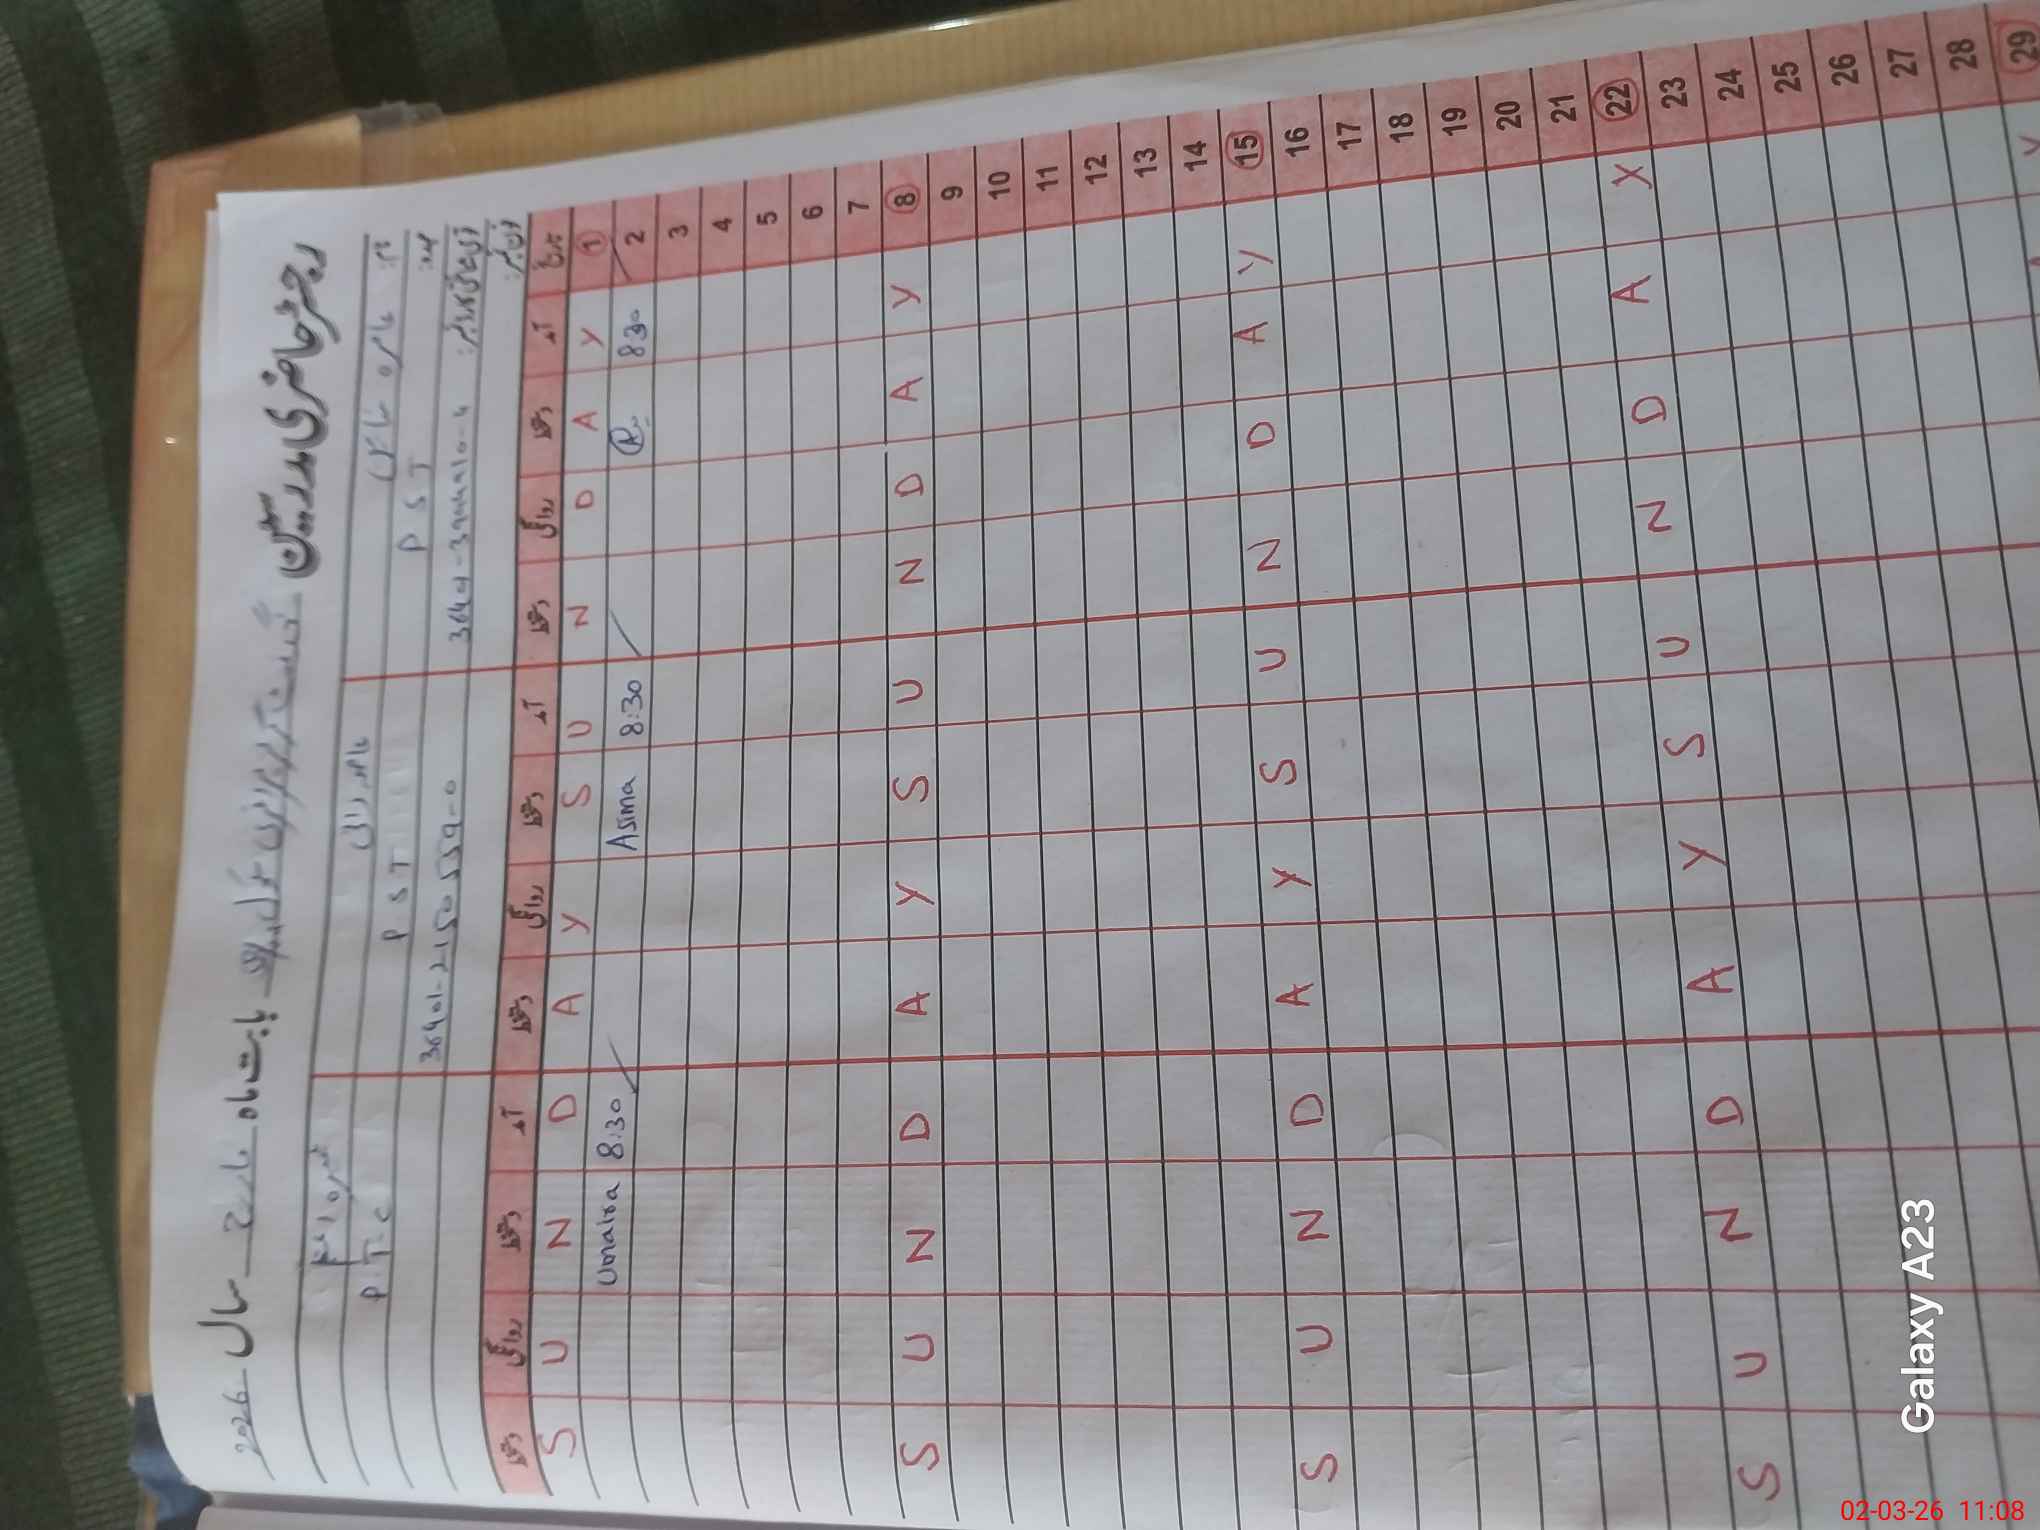 رجسٹر حاضری مدرسین بابت ماہ مارچ سال 2026
نام:
عہدہ: P S T P S T P T C
شناختی کارڈ نمبر: 36401-2150539-0
فون نمبر:
تاریخ آمد دستخط روانگی دستخط آمد دستخط روانگی دستخط آمد دستخط روانگی دستخط
1 S U N D A Y S U N D A Y
2 8:30 Asima 8:30 Umaira 8:30
3
4
5
6
7
8 S U N D A Y S U N D A Y
9
10
11
12
13
14
15 S U N D A Y S U N D A Y
16
17
18
19
20
21
22 S U N D A Y S U N D A Y
23
24
25
26
27
28
29
Galaxy A23
02-03-26 11:08